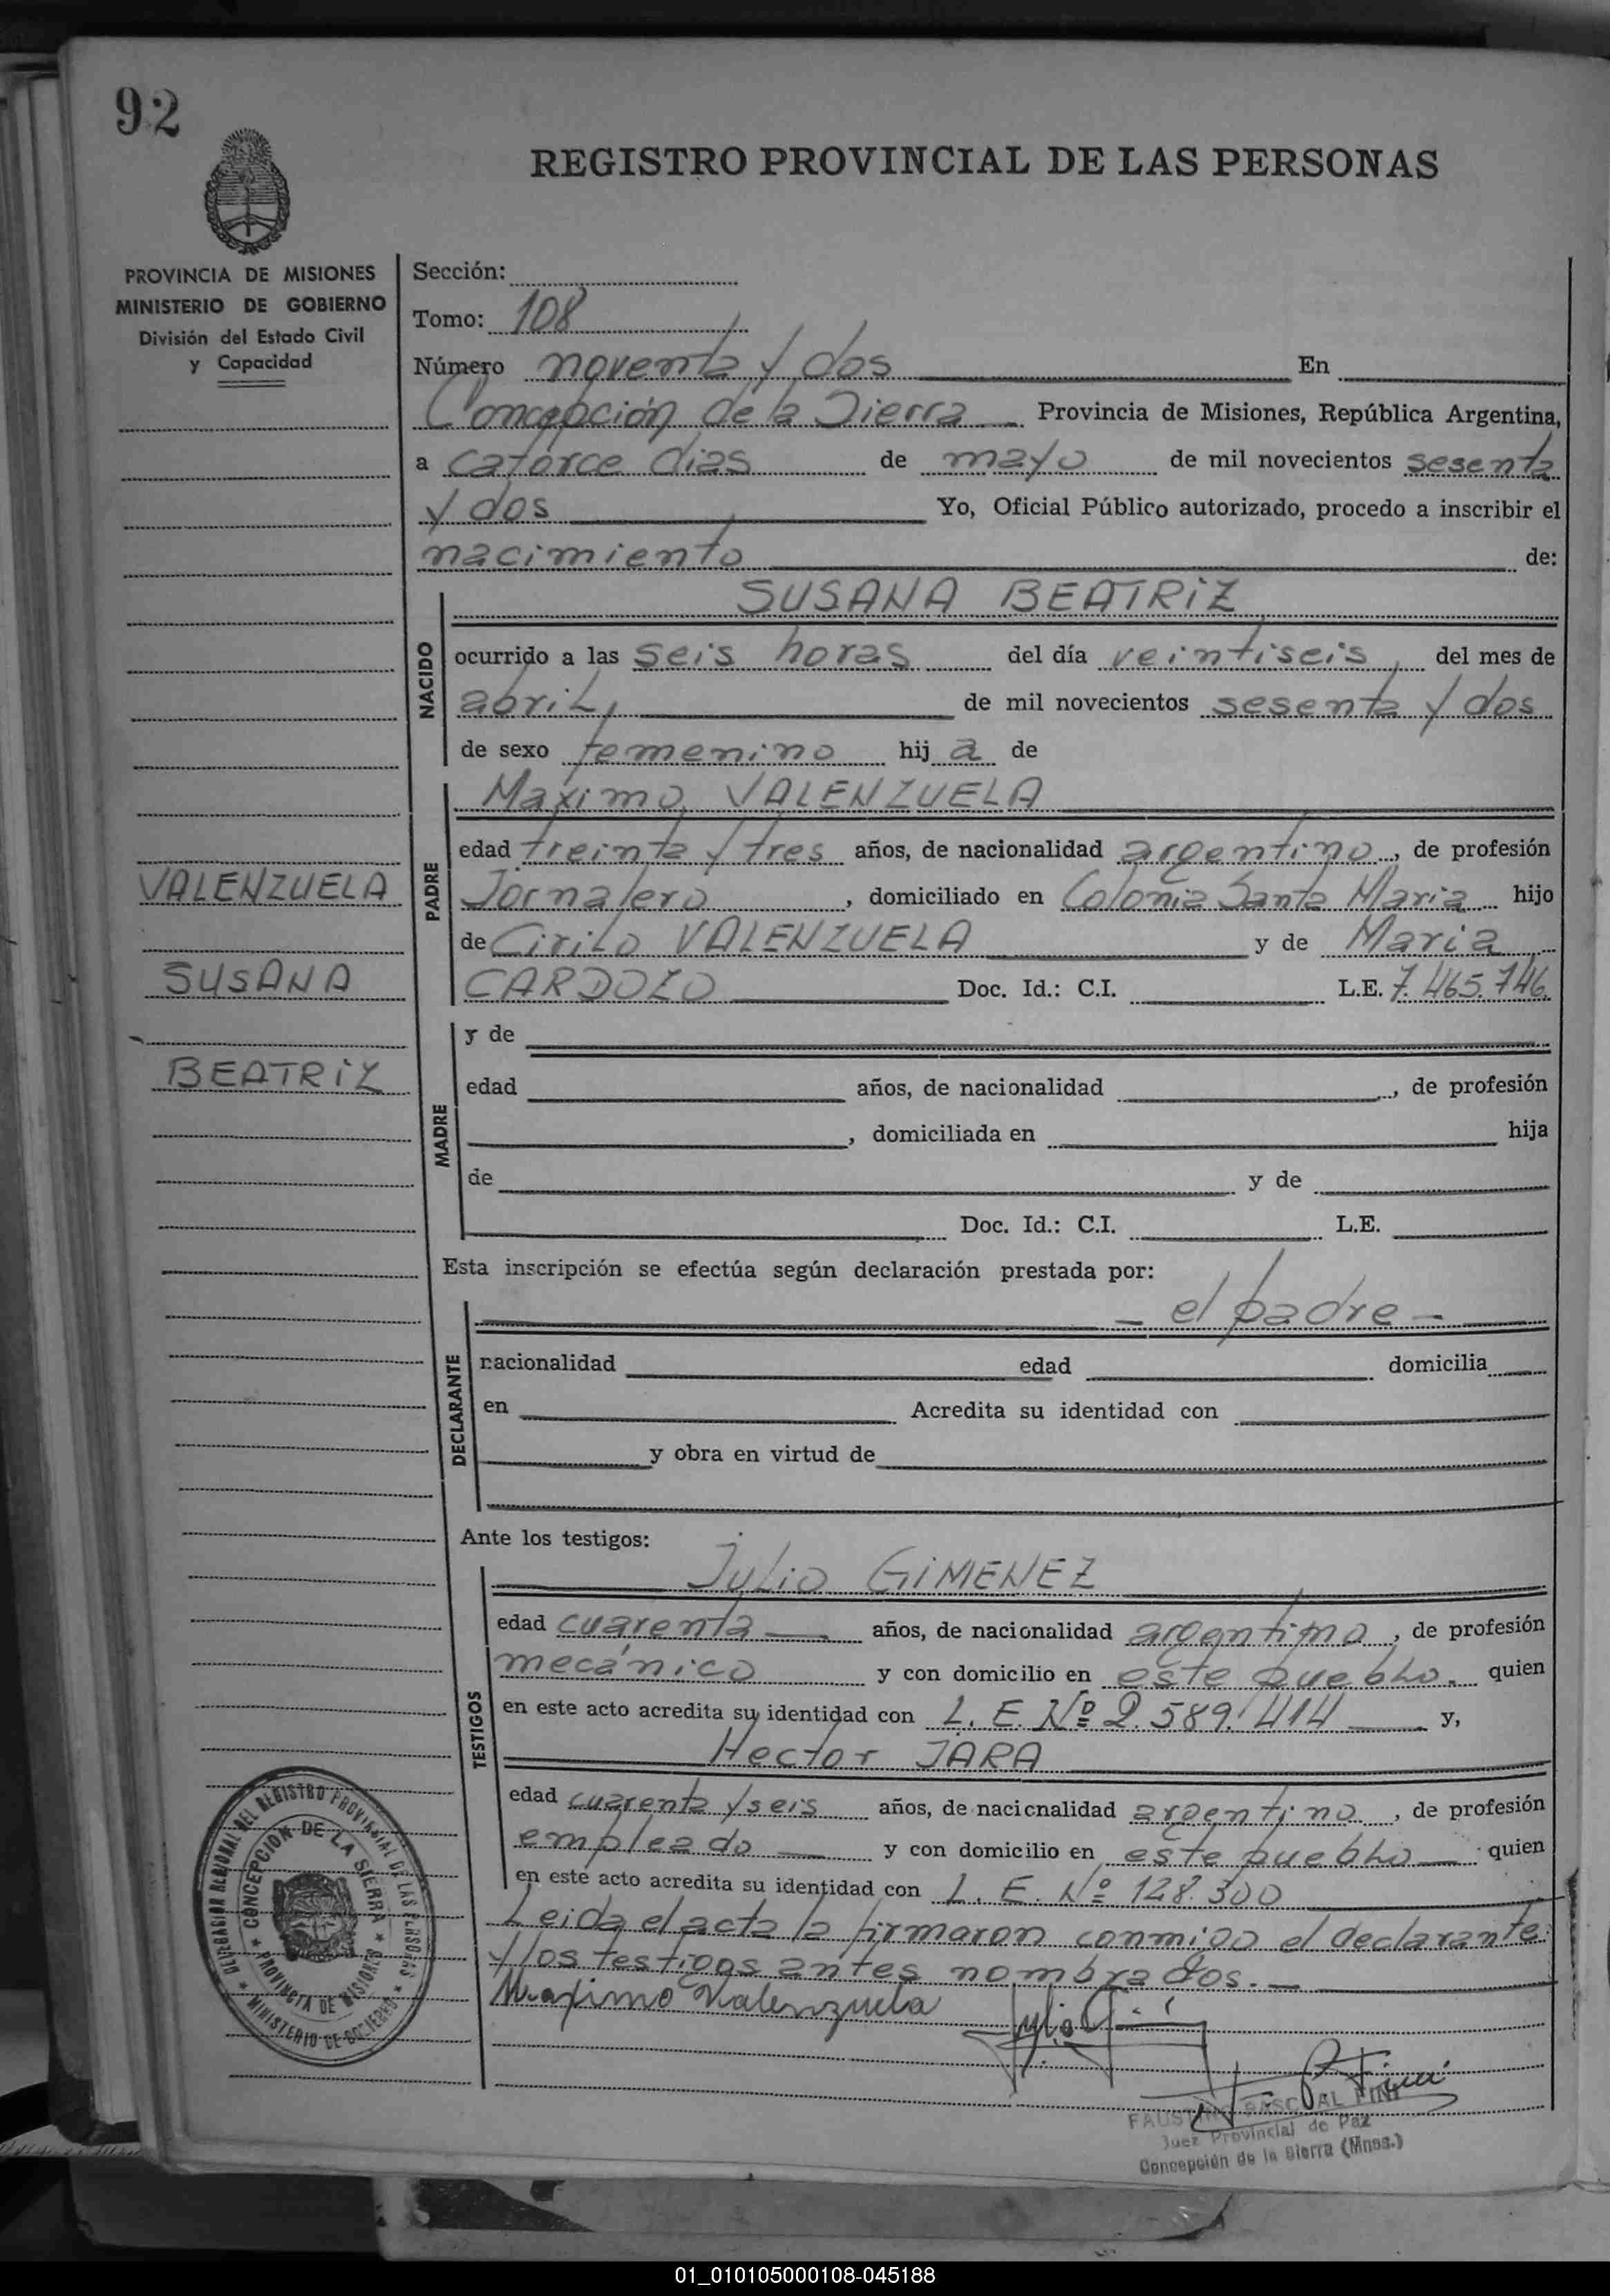 92
REGISTRO PROVINCIAL DE LAS PERSONAS
PROVINCIA DE MISIONES
MINISTERIO DE GOBIERNO
División del Estado Civil
y Capacidad
VALENZUELA
SUSANA
BEATRIZ
Sección:
Tomo: 108
Número noventa y dos En
Concepción de la Sierra Provincia de Misiones, República Argentina,
a catorce dias de mayo de mil novecientos sesenta
y dos Yo, Oficial Público autorizado, procedo a inscribir el
nacimiento de:
NACIDO
SUSANA BEATRIZ
ocurrido a las seis horas del día veintiseis, del mes de
abril, de mil novecientos sesenta y dos
de sexo femenino hij a de
PADRE
Maximo VALENZUELA
edad treinta y tres años, de nacionalidad argentino, de profesión
Jornalero, domiciliado en Colonia Santa Maria hijo
de Cirilo VALENZUELA y de Maria
CARDOZO Doc. Id.: C.I. L.E. 7.465.746.
MADRE
y de
edad años, de nacionalidad , de profesión
, domiciliada en hija
de y de
Doc. Id.: C.I. L.E.
Esta inscripción se efectúa según declaración prestada por:
DECLARANTE
— el padre —
nacionalidad edad domicilia
en Acredita su identidad con
y obra en virtud de
Ante los testigos:
TESTIGOS
Julio GIMENEZ
edad cuarenta — años, de nacionalidad argentino, de profesión
mecánico y con domicilio en este pueblo. quien
en este acto acredita su identidad con L. E. Nº 2.589.414 — y,
Hector JARA
edad cuarenta y seis años, de nacionalidad argentino, de profesión
empleado — y con domicilio en este pueblo — quien
en este acto acredita su identidad con L. E. Nº 128.300
Leida el acta la firmaron conmigo el declarante
y los testigos antes nombrados. —
Maximo Valenzuela
FAUSTINO PASCUAL FINI
Juez Provincial de Paz
Concepción de la Sierra (Mnes.)
DELEGACION REGIONAL DEL REGISTRO PROVINCIAL DE LAS PERSONAS
MINISTERIO DE GOBIERNO
CONCEPCION DE LA SIERRA
PROVINCIA DE MISIONES
01_010105000108-045188